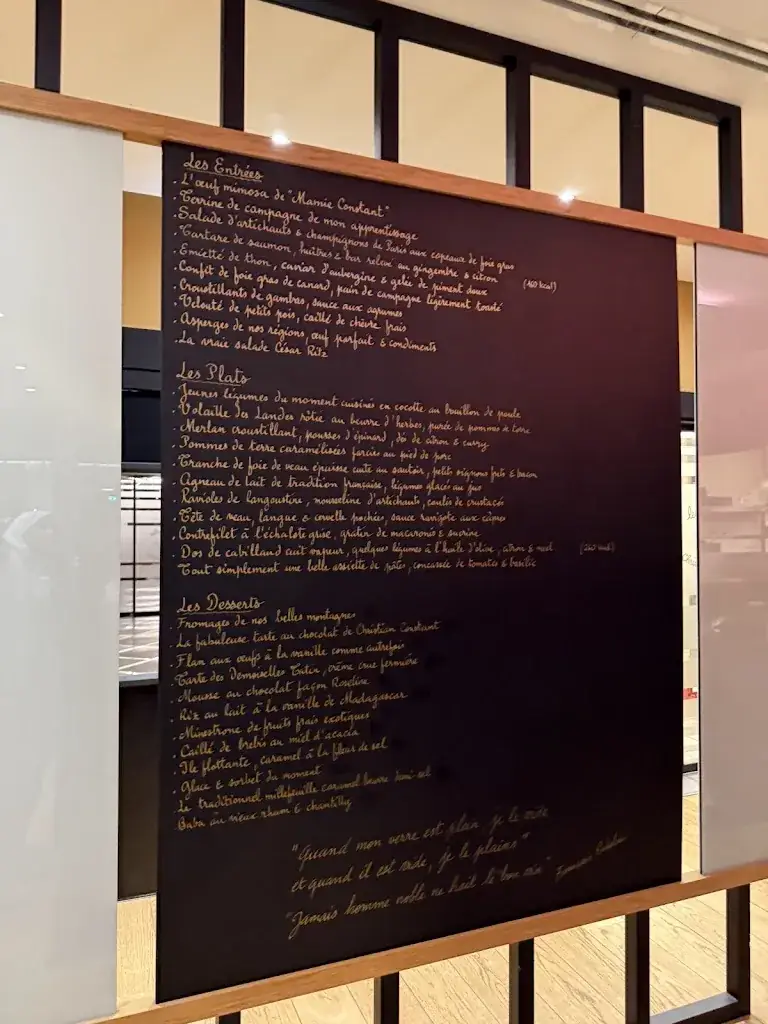 Les Entrées
. L'œuf mimosa de "Mamie Constant"
. Terrine de campagne de mon apprentissage
. Salade d'artichauts & champignons de Paris aux copeaux de foie gras
. Tartare de saumon, huîtres & bar relevé au gingembre & citron (160 kcal)
. Emietté de thon, caviar d'aubergine & gelée de piment doux
. Confit de foie gras de canard, pain de campagne légèrement toasté
. Croustillants de gambas, sauce aux agrumes
. Velouté de petits pois, caillé de chèvre frais
. Asperges de nos régions, œuf parfait & condiments
. La vraie salade César Ritz
Les Plats
. Jeunes légumes du moment cuisinés en cocotte au bouillon de poule
. Volaille des Landes rôtie au beurre d'herbes, purée de pommes de terre
. Merlan croustillant, pousses d'épinard, dés de citron & curry
. Pommes de terre caramélisées farcies au pied de porc
. Tranche de foie de veau épaisse cuite au sautoir, petits oignons frits & bacon
. Agneau de lait de tradition française, légumes glacés au jus
. Ravioles de langoustine, mousseline d'artichauts, coulis de crustacés
. Tête de veau, langue & cervelle pochées, sauce ravigote aux câpres
. Contrefilet à l'échalote grise, gratin de macaronis & sucrine
. Dos de cabillaud cuit vapeur, quelques légumes à l'huile d'olive, citron & miel
. Tout simplement une belle assiette de pâtes, concassée de tomates & basilic
Les Desserts
. Fromages de nos belles montagnes
. La fabuleuse tarte au chocolat de Christian Constant
. Flan aux œufs à la vanille comme autrefois
. Tarte des Demoiselles Tatin, crème crue fermière
. Mousse au chocolat façon Roseline
. Riz au lait à la vanille de Madagascar
. Minestrone de fruits frais exotiques
. Caillé de brebis au miel d'acacia
. Ile flottante, caramel à la fleur de sel
. Glace & sorbet du moment
. Le traditionnel millefeuille caramel beurre demi-sel
. Baba au vieux rhum & chantilly
"Quand mon verre est plein je le vide
et quand il est vide, je le plains"
"Jamais homme noble ne hait le bon vin"